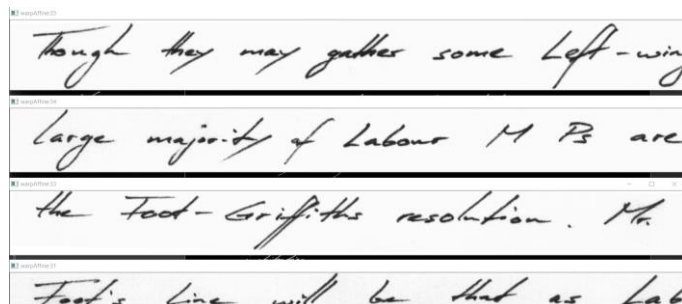 warpAffine:35
Though they may gather some Left-wing
warpAffine:34
large majority of Labour M Ps are
warpAffine:33
the Foot-Griffiths resolution. Mr.
Foot's line will be that as Lab